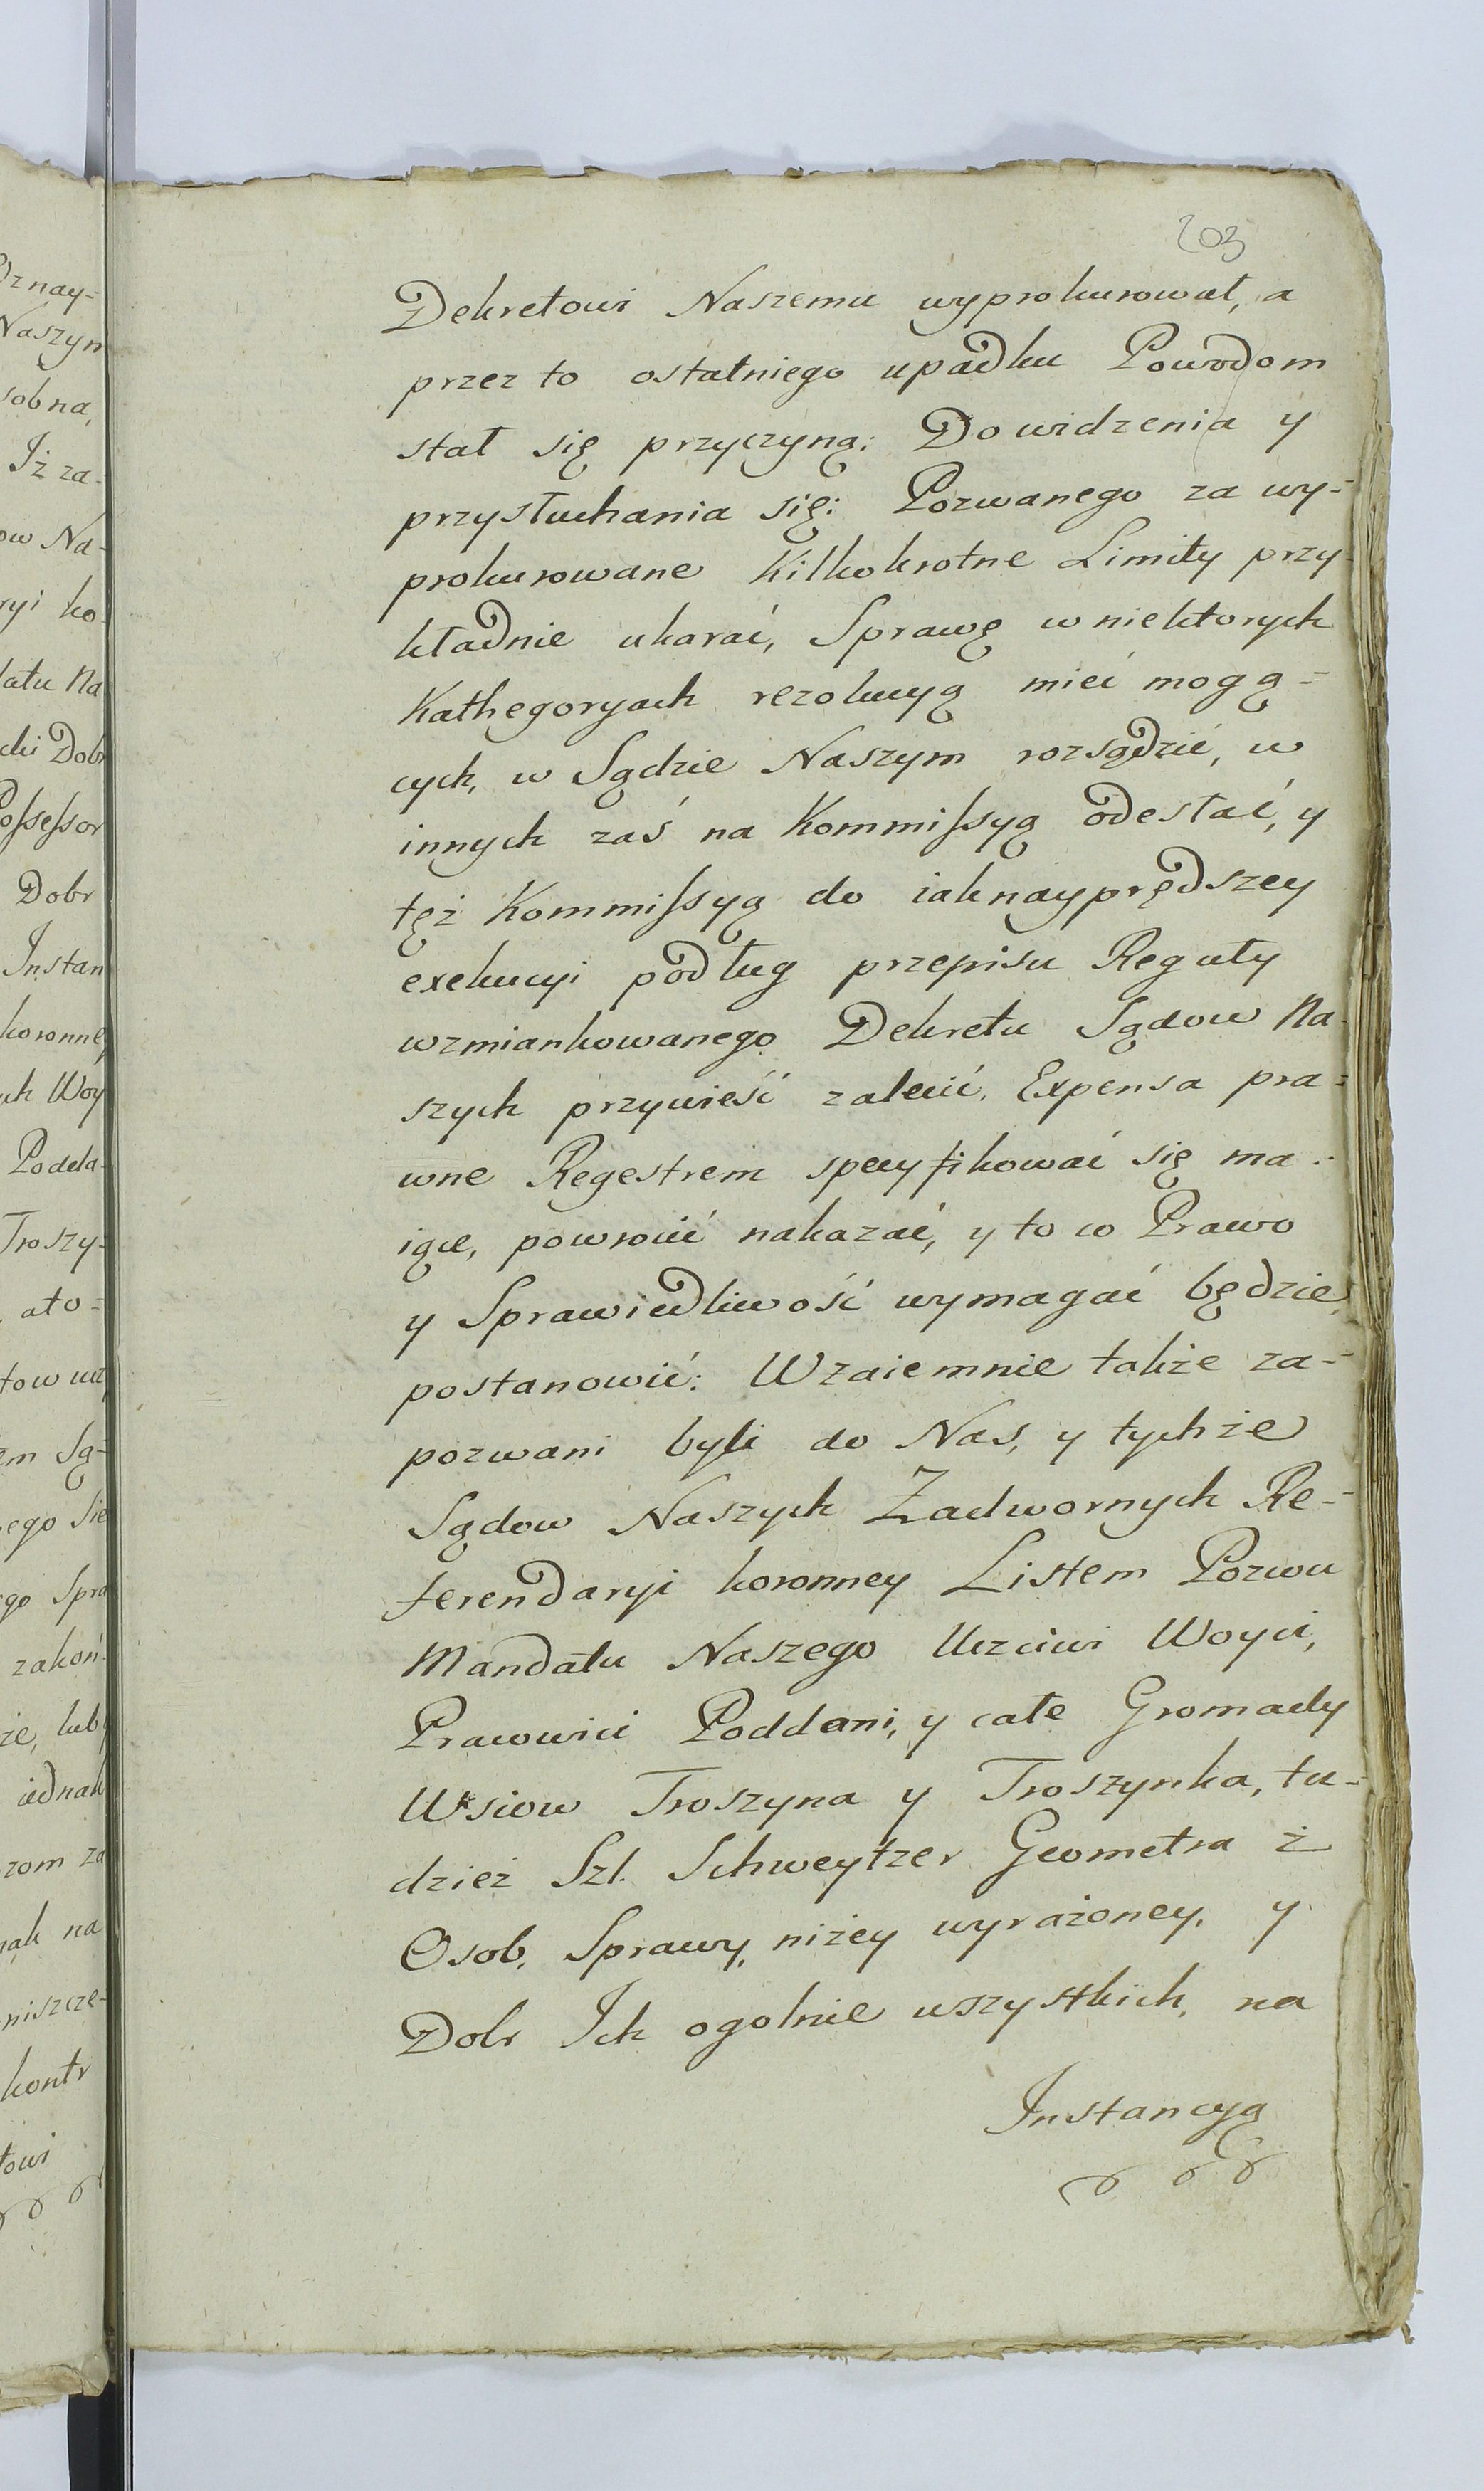 203
Dekretowi Naszemu wyprokurował, a
przez to ostatniego upadku Powodom
stał się przyczyną: Do widzenia y
przysłuchania się: Pozwanego za wy=
prokurowane kilkokrotne Limity przy-
kładnie ukarać, Sprawę w niektorych
Kathegoryach rezolucyą mieć mogą=
cych, w Sądzie Naszym rozsądzić, w
innych zaś na Kommissyą odesłać, y
tęż Kommissyą do iaknayprędszey
exekucyi podług przepisu Reguły
wzmiankowanego Dekretu Sądow Na-
szych przywieść zalecić. Expensa pra=
wne Regestrem specyfikować się ma:
iące, powrócić nakazać, y to co Prawo
y Sprawiedliwość wymagać będzie,
postanowić: Wzaiemnie także za=
pozwani byli do Nas, y tychże
Sądow Naszych Zadwornych Re=
ferendaryi koronney Listem Pozwu
Mandatu Naszego Uczciwi Woyci,
Prawowici Poddani, y całe Gromady
Wsiow Troszyna y Troszynka, tu=
dzież Szl. Schweytzer Geometra z
Osob, Sprawy, niżey wyrażoney, y
Dobr Ich ogolnie wszystkich, na
Instancyą